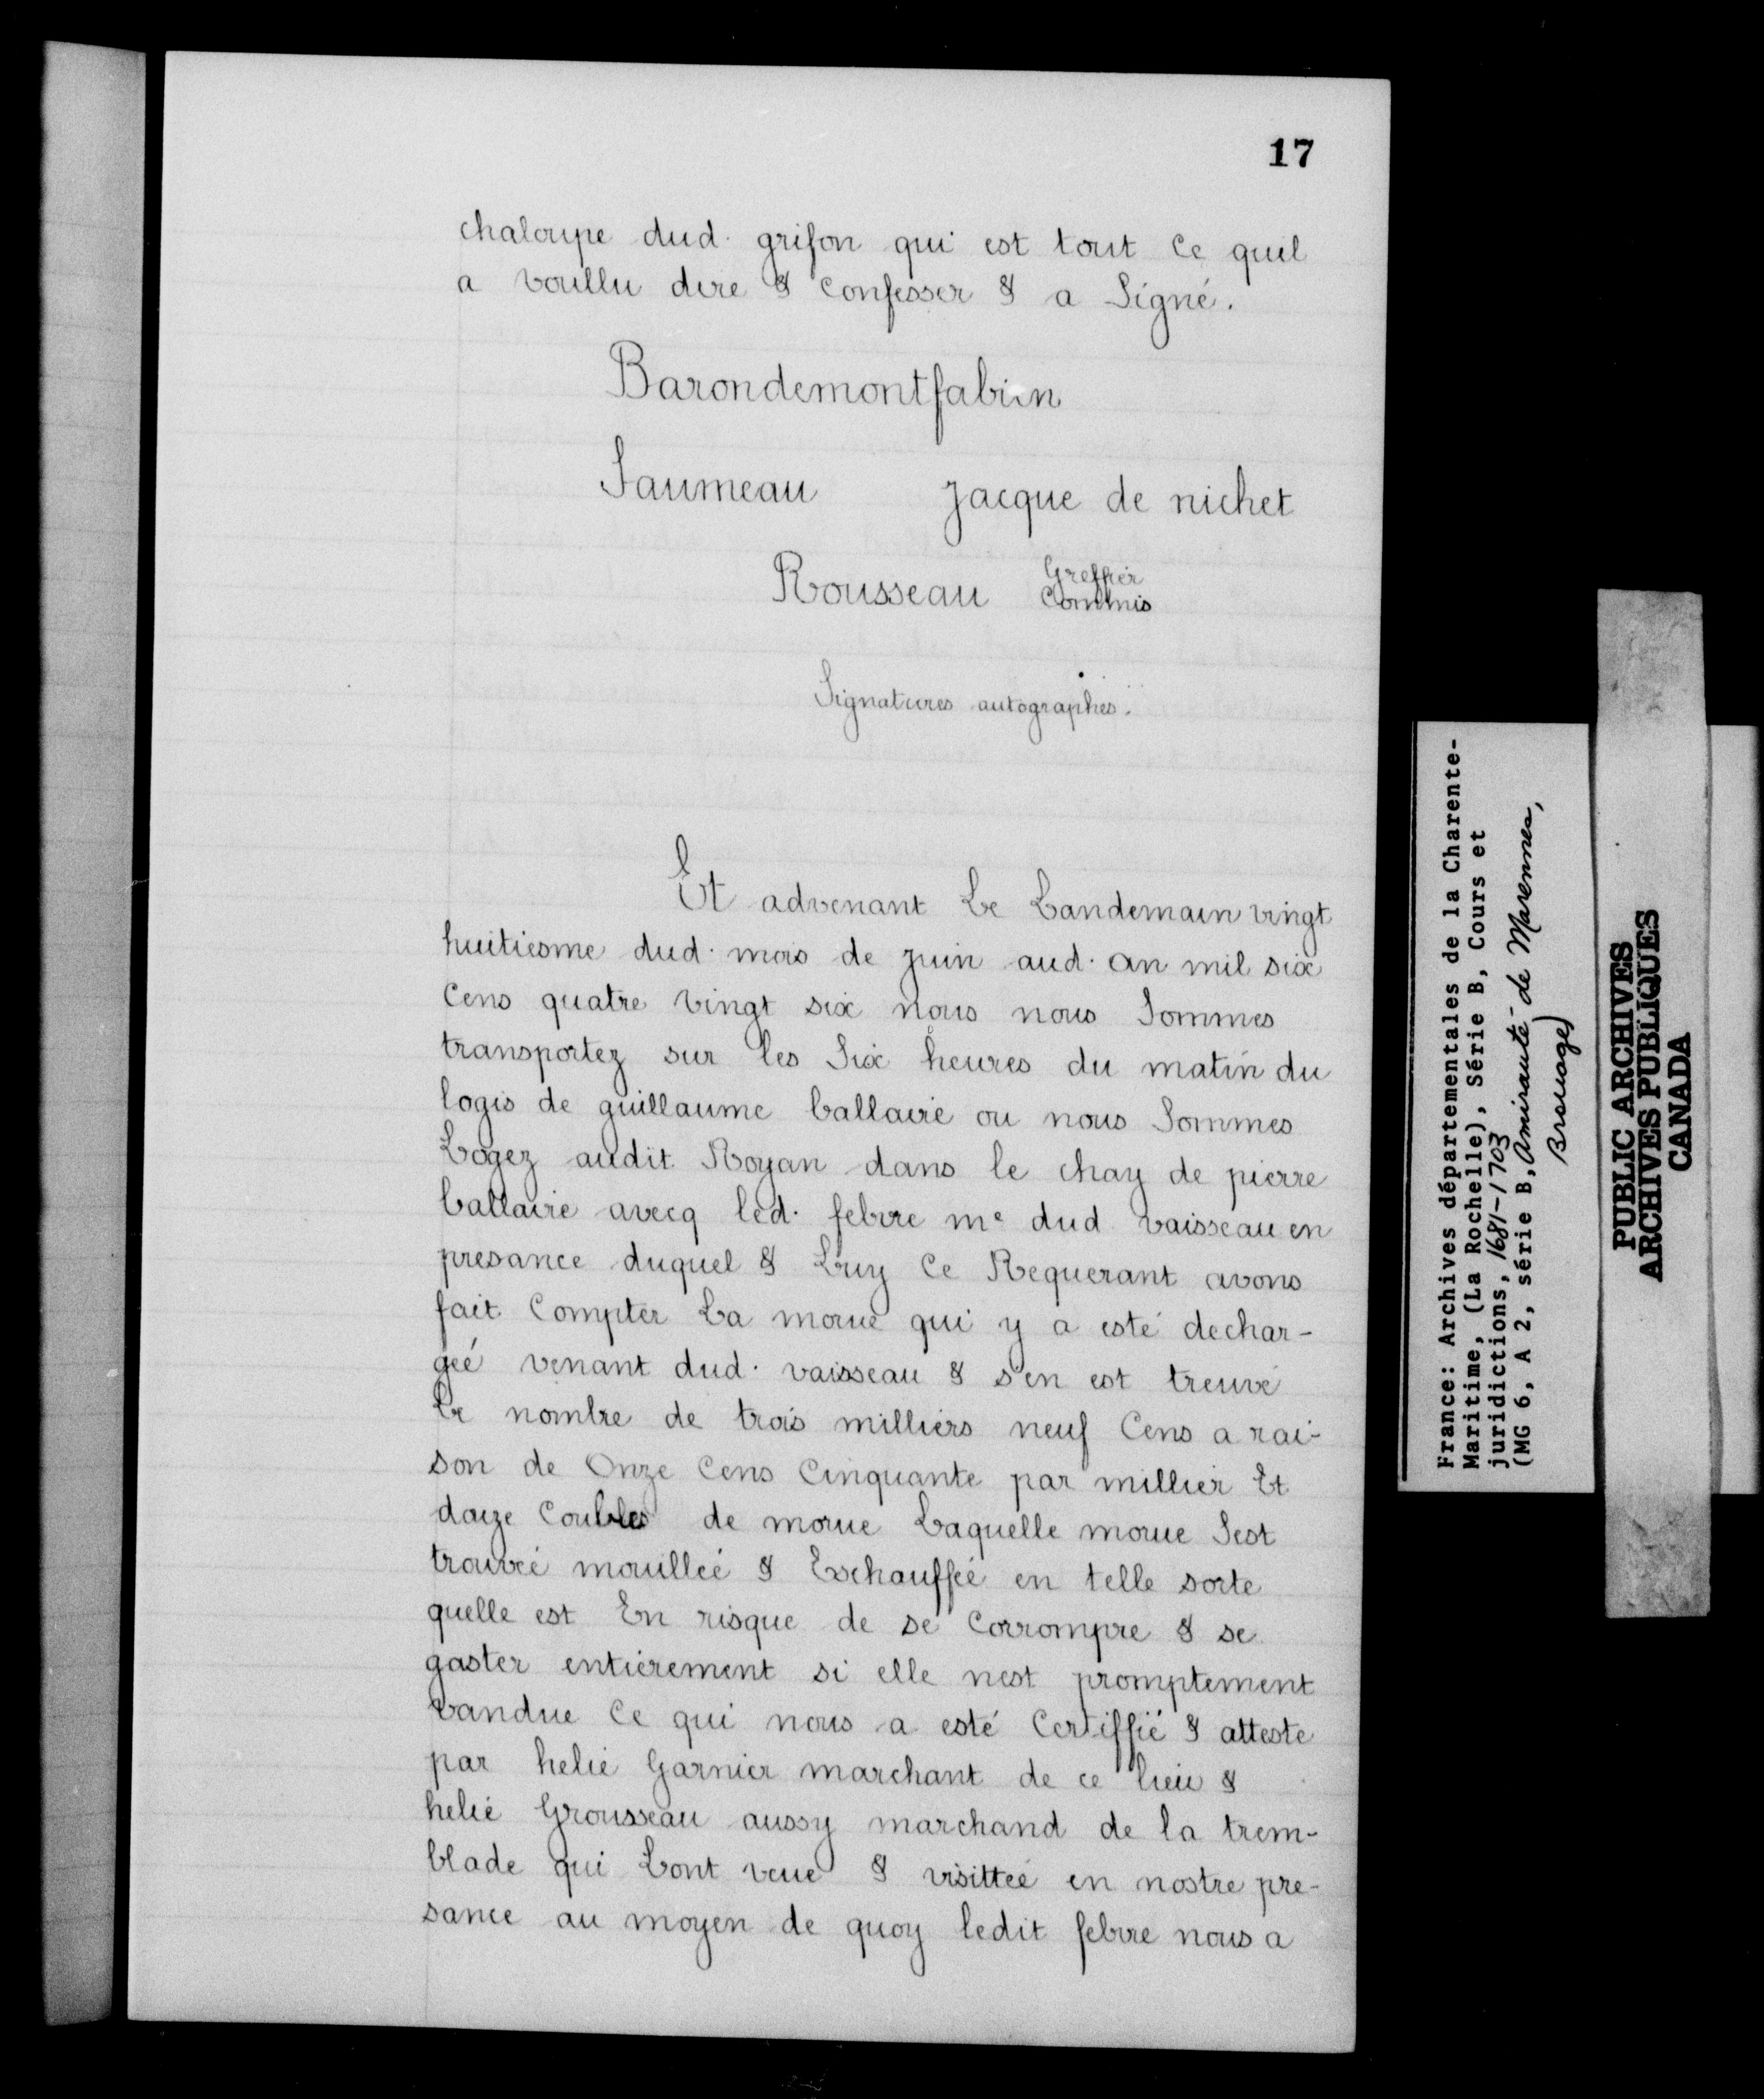 17
chaloupe dud. grifon qui est tout Ce quil
a voullu dire & Confesser & a Signé.
Barondemontfabien
Saumeau Jacque de nichet
Rousseau Greffier
Commis
Signatures autographes.
Et advenant Le Landemain vingt
huitiesme dud. mois de juin aud. an mil six
Cens quatre Vingt six nous nous Sommes
transportez sur les Six heures du matin du
logis de guillaume ballaire ou nous Sommes
Logez audit Royan dans le chay de pierre
ballaire avecq led. febvre me dud vaisseau en
presance duquel & Luy Ce Requerant avons
fait Compter La morue qui y a esté dechar-
geé venant dud. vaisseau & s'en est treuvé
Le nombre de trois milliers neuf Cens a rai-
son de Onze Cens Cinquante par millier Et
douze Coubles de morue Laquelle morue Sest
trouveé mouilleé & Eschauffeé en telle sorte
quelle est En risque de se Corrompre & se
gaster entierement si elle nest promptement
vandue Ce qui nous a esté Certiffié & atteste
par helie Garnier marchant de ce lieu &
helie Grousseau aussy marchand de la trem-
blade qui Lont veue & visitteé en nostre pre-
sance au moyen de quoy ledit febvre nous a
France: Archives départementales de la Charente-
Maritime, (La Rochelle), Série B, Cours et
juridictions, 1681-1703
(MG 6, A 2, série B, Amirauté de Marennes,
Brouage)
PUBLIC ARCHIVES
ARCHIVES PUBLIQUES
CANADA